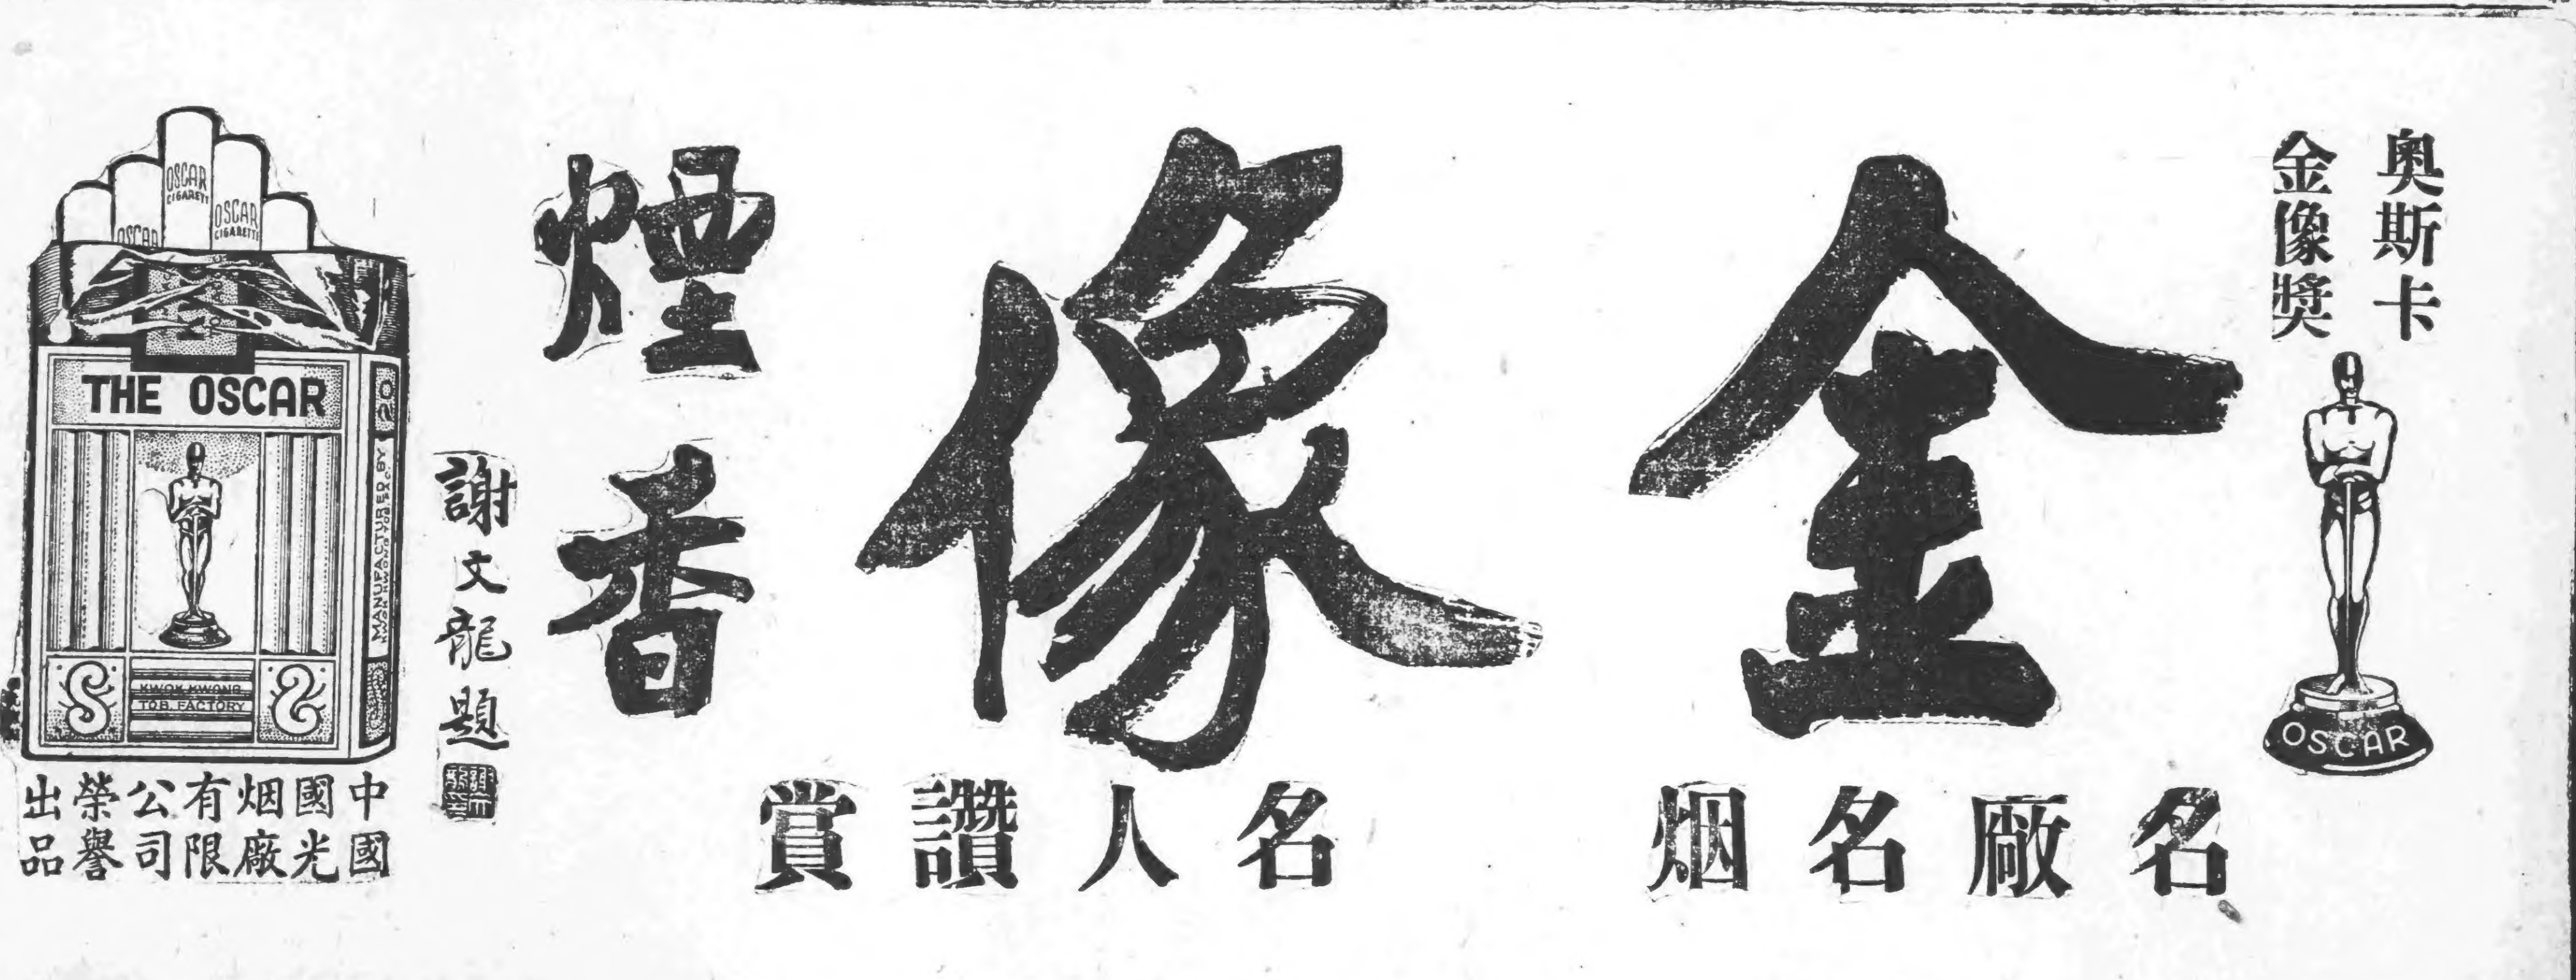 奧斯卡
金像獎
OSCAR
金像
煙香
名廠名烟
名人讚賞
謝文龍題
OSCAR
CIGARETT
OSCAR
CIGARETTE
OSCAR
THE OSCAR
20
MANUFACTURED BY
KWOK KWONG
TOB. FACTORY
中國
國光
烟廠
有限
公司
榮譽
出品